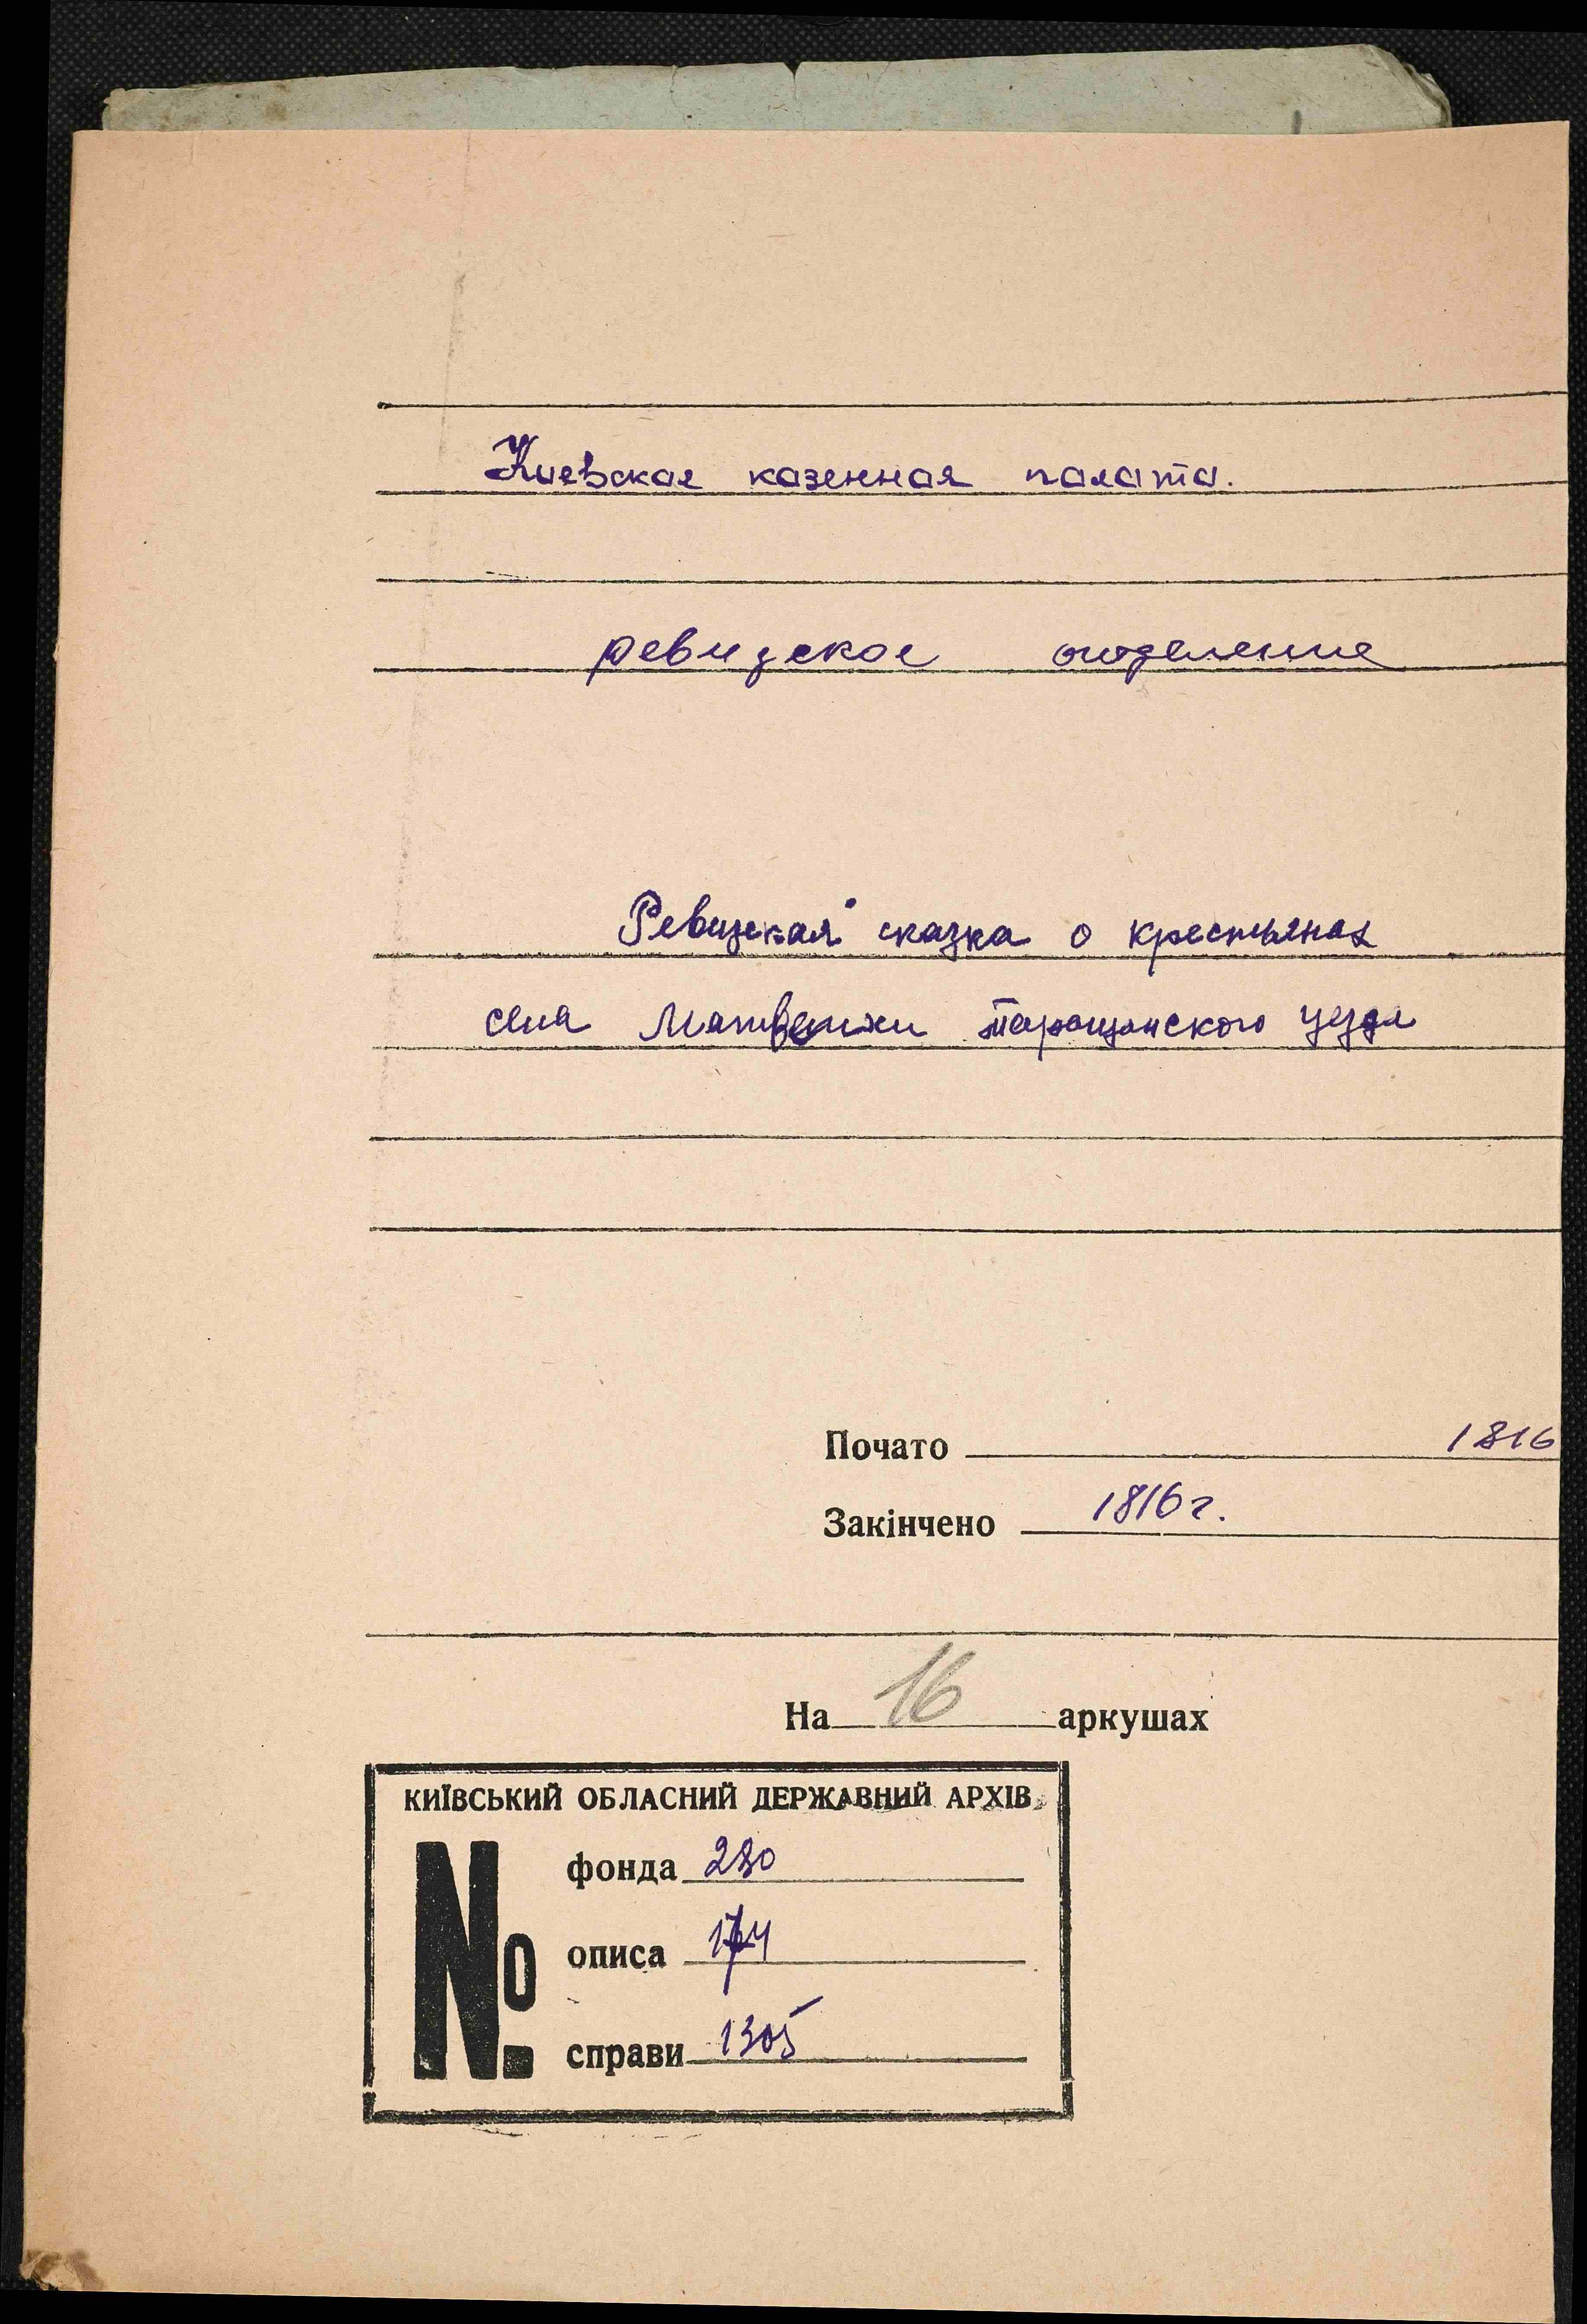 Киевская казенная палата.
ревизское отделение
Ревизская сказка о крестьянах
села Матвеихи Таращанского уезда
Почато 1816
Закінчено 1816 г.
На 16 аркушах
КИЇВСЬКИЙ ОБЛАСНИЙ ДЕРЖАВНИЙ АРХІВ
№
фонда 280
описа 174
справи 1305